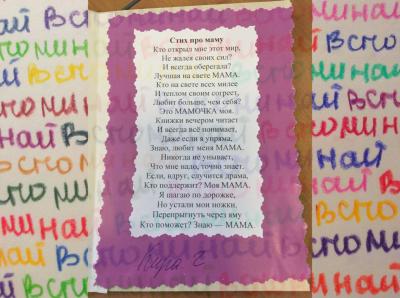 Стих про маму
Кто открыл мне этот мир,
Не жалея своих сил?
И всегда оберегала?
Лучшая на свете МАМА.
Кто на свете всех милее
И теплом своим согреет,
Любит больше, чем себя?
Это МАМОЧКА моя.
Книжки вечером читает
И всегда всё понимает,
Даже если я упряма,
Знаю, любит меня МАМА.
Никогда не унывает,
Что мне надо, точно знает.
Если, вдруг, случится драма,
Кто поддержит? Моя МАМА.
Я шагаю по дорожке,
Но устали мои ножки.
Перепрыгнуть через яму
Кто поможет? Знаю — МАМА.